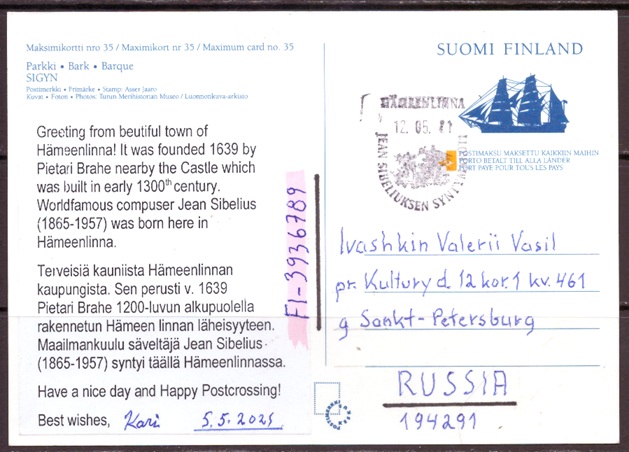 Maksimikortti nro 35 / Maximikort nr 35 / Maximum card no. 35
Parkki • Bark • Barque
SIGYN
Postimerkki • Frimärke • Stamp: Asser Jaaro
Kuvat • Foton • Photos: Turun Merihistorian Museo / Luonnonkuva-arkisto
Greeting from beutiful town of
Hämeenlinna! It was founded 1639 by
Pietari Brahe nearby the Castle which
was built in early 1300th century.
Worldfamous compuser Jean Sibelius
(1865-1957) was born here in
Hämeenlinna.
Terveisiä kauniista Hämeenlinnan
kaupungista. Sen perusti v. 1639
Pietari Brahe 1200-luvun alkupuolella
rakennetun Hämeen linnan läheisyyteen.
Maailmankuulu säveltäjä Jean Sibelius
(1865-1957) syntyi täällä Hämeenlinnassa.
Have a nice day and Happy Postcrossing!
Best wishes, Kari 5.5.2021
FI-3936789
SUOMI FINLAND
HÄMEENLINNA
12.05.21
JEAN SIBELIUKSEN
POSTIMAKSU MAKSETTU KAIKKIIN MAIHIN
PORTO BETALT TILL ALLA LÄNDER
PORT PAYÉ POUR TOUS LES PAYS
Ivashkin Valerii Vasil
pr. Kultury d. 12 kor. 1 kv. 461
g Sankt-Petersburg
RUSSIA
194291